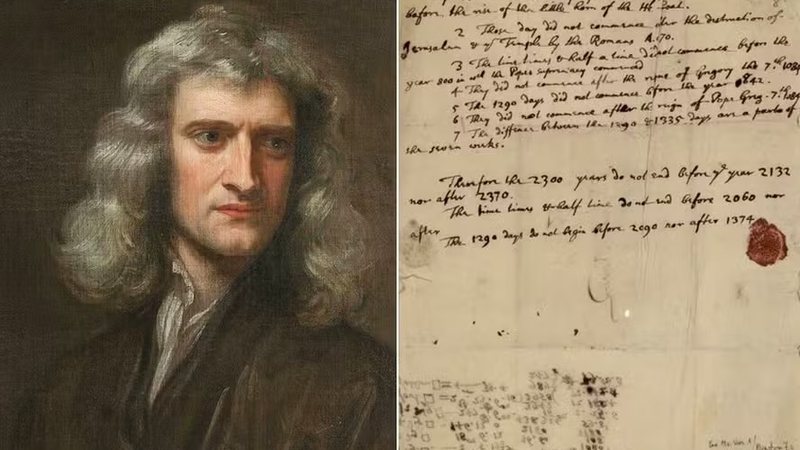 before, the rise of the little horn of the He Goat.
2 Those day did not commence after the destruction of
Jerusalem & ye Temple by the Romans A. 70.
3 The time times & half a time did not commence before the
year 800 in wch the Popes supremacy commenced
4 They did not commence after the reigne of Gregory the 7th. 1084
5 The 1290 days did not commence before the year 842.
6 They did not commence after the reigne of Pope Greg. 7th. 1084
7 The diffence between the 1290 & 1335 days are a parts of
the seven weeks.
Therefore the 2300 years do not end before ye year 2132
nor after 2370.
The time times & half time do not end before 2060 nor
after
The 1290 days do not begin before 2090 nor after 1374